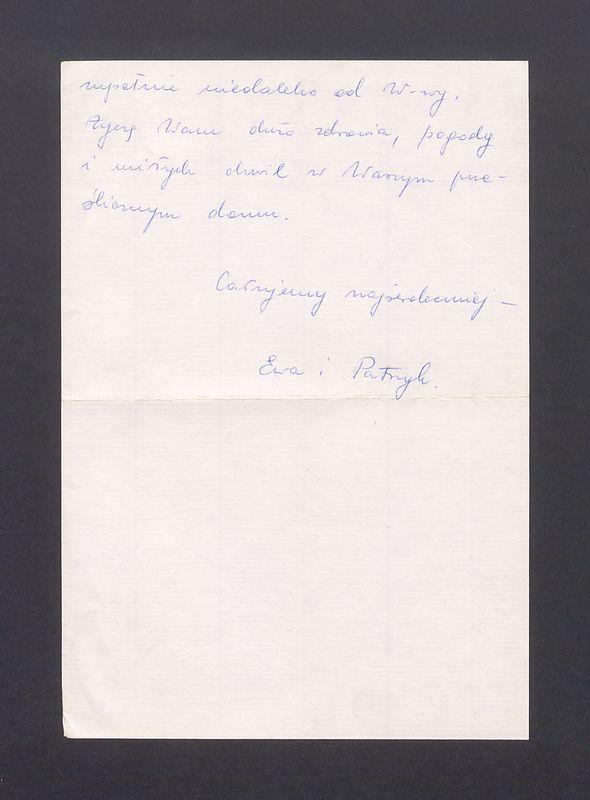 zupełnie niedaleko od W-wy.
Życzę Wam dużo zdrowia, pogody
i miłych chwil w Waszym prze-
ślicznym domu.
Całujemy najserdeczniej –
Ewa i Patryk.